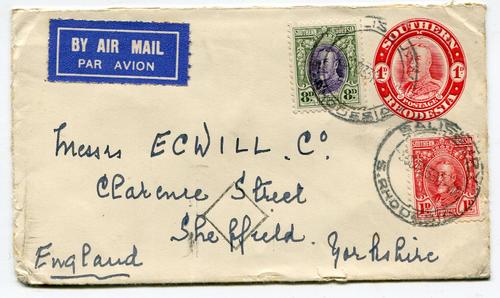 BY AIR MAIL
PAR AVION
SOUTHERN RHODESIA
8D 8D
SOUTHERN
1D 1D
POSTAGE
RHODESIA
SALISBURY
S. RHODESIA
SOUTHERN RHODESIA
1D 1D
Messrs ECWILL. Co.
Clarence Street
Sheffield.
Yorkshire
England